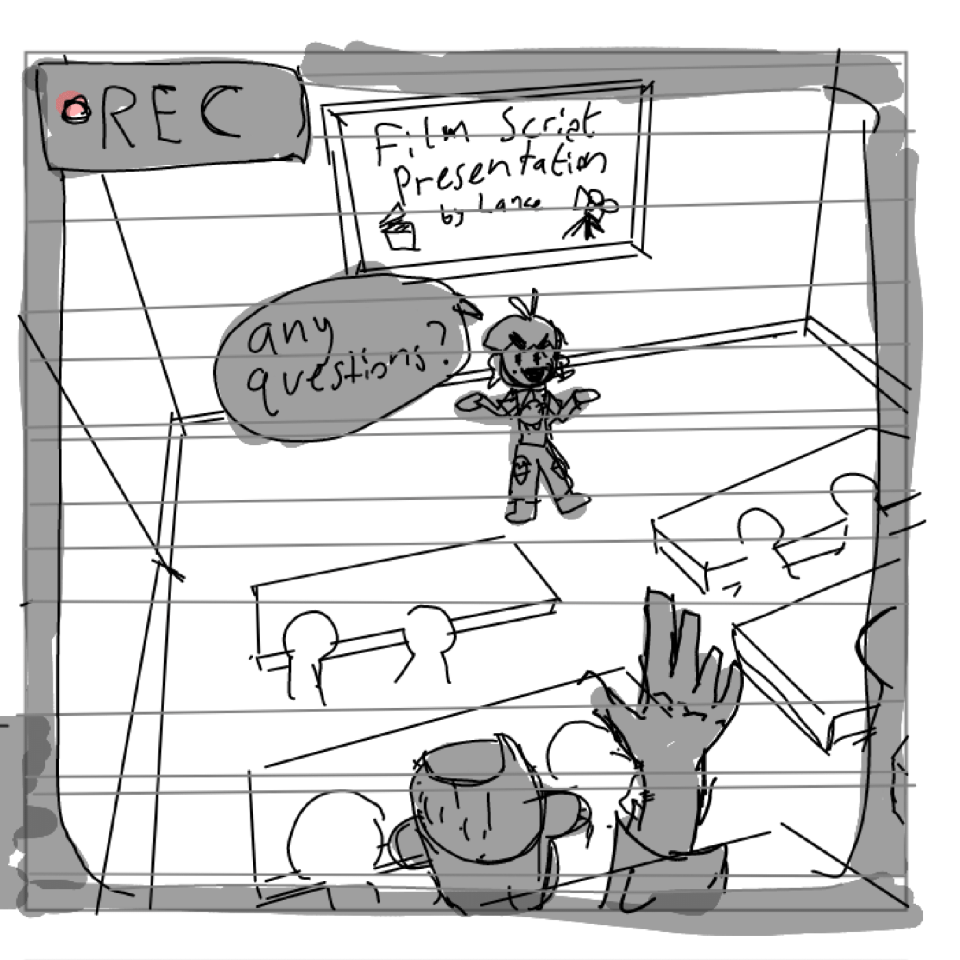 REC
Film Script
Presentation
by Lance
any
questions?